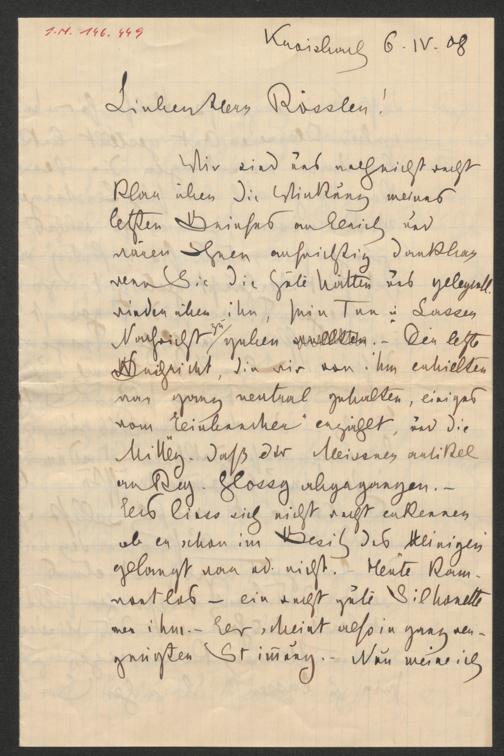 I.N. 146.449
6. IV. 08
Lieber Herr Rössler!
Wir sind uns noch nicht recht
klar über die Wirkung meines
letzten Briefes an Erich und
wären Ihnen aufrichtig dankbar
wenn Sie die Güte hätten uns gelegentl.
wieder über ihn, sein Tun u Lassen
Nachricht zu geben. – Die letzte
Nachricht, die wir von ihm erhielten
war ganz neutral gehalten, einiges
vom "Einbrecher" erzählt, und die
Mittlg. daß der Meissner artikel
an Reg. Glossy abgegangen. –
Es liess sich nicht recht erkennen
ob er schon im Besitz des Meinigen
gelangt war od. nicht. – Heute kam
wortlos – ein recht gute Silhouette
von ihm. – Er scheint also in ganz ver-
gnügter Stimmung. – Nun meine ich